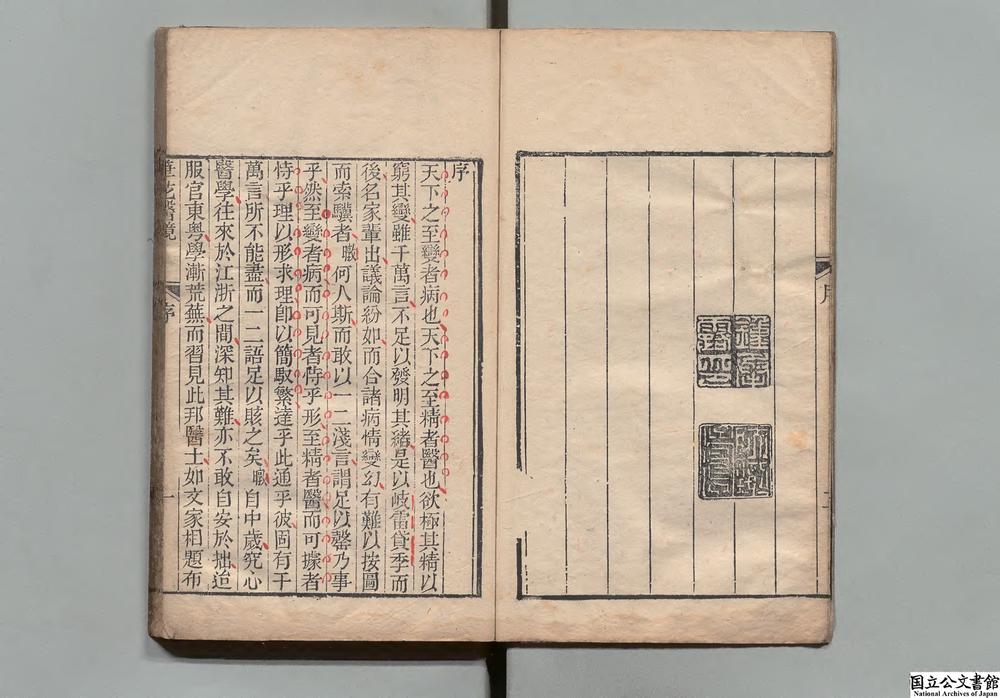 序
天下之至變者病也天下之至精者醫也欲極其精以
窮其變雖千萬言不足以發明其緒是以岐雷貸季而
後名家輩出議論紛如而合諸病情變幻有難以按圖
而索驥者暾何人斯而敢以一二淺言謂足以罄乃事
乎然至變者病而可見者恃乎形至精者醫而可據者
恃乎理以形求理卽以簡馭繁達乎此通乎彼固有千
萬言所不能盡而一二語足以賅之矣暾自中歲究心
醫學往來於江浙之間深知其難亦不敢自安於拙迨
服官東粤學漸荒蕪而習見此邦醫士如文家相題布
筆花醫鏡 序 一
国立公文書館
National Archives of Japan